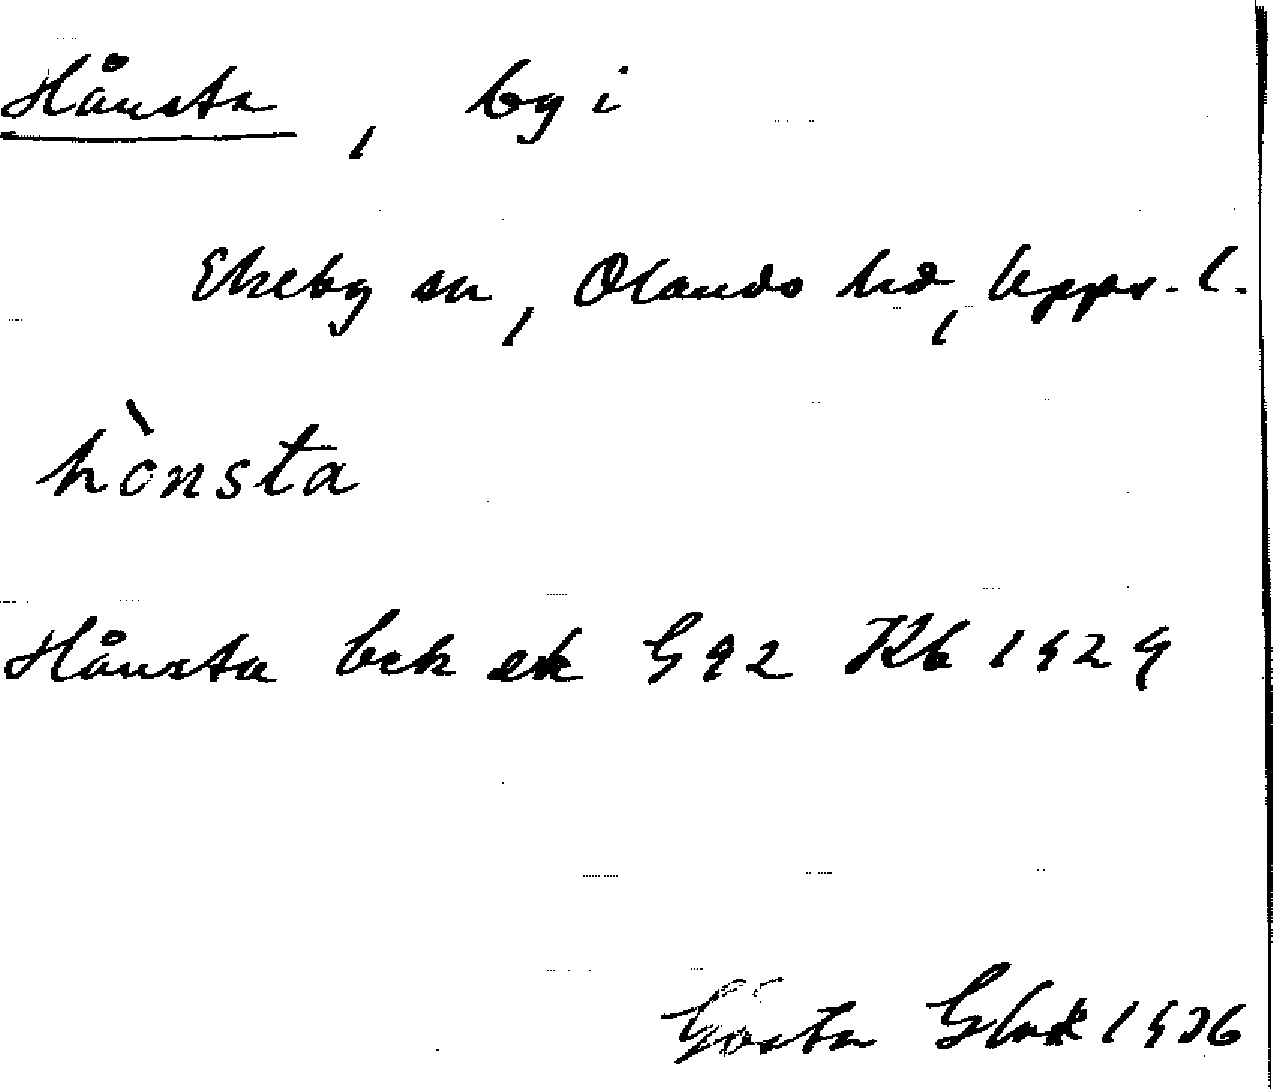 Hånsta, by i
Ekeby sn, Olands hd, Upps. l.
hònsta
Hånsta bek ek G 92 Kb 1929
Gösta 1936